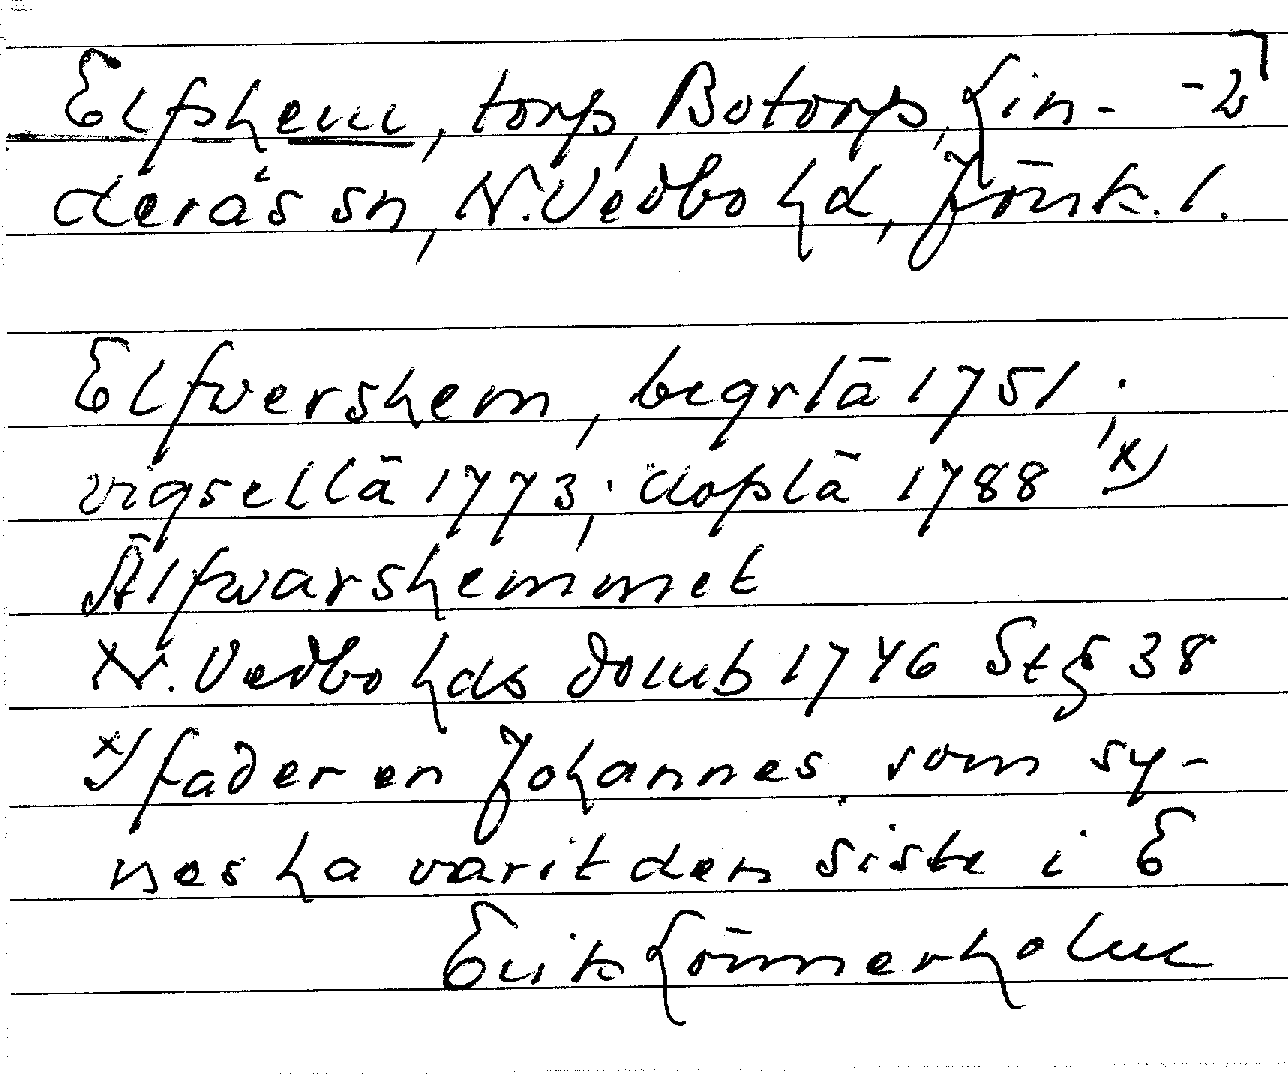 Elfshem, torp, Botorp, Lin- -2
derås sn, N. Vedbo hd, Jönk. l.
Elfvershem, begrlä 1751;
vigsellä 1773; doplä 1788 x)
Älfvarshemmet
N. Vedbo hds domb 1746 St § 38
x) fadern en Johannes som sy-
nes ha varit den siste i E
Erik Lönnerholm